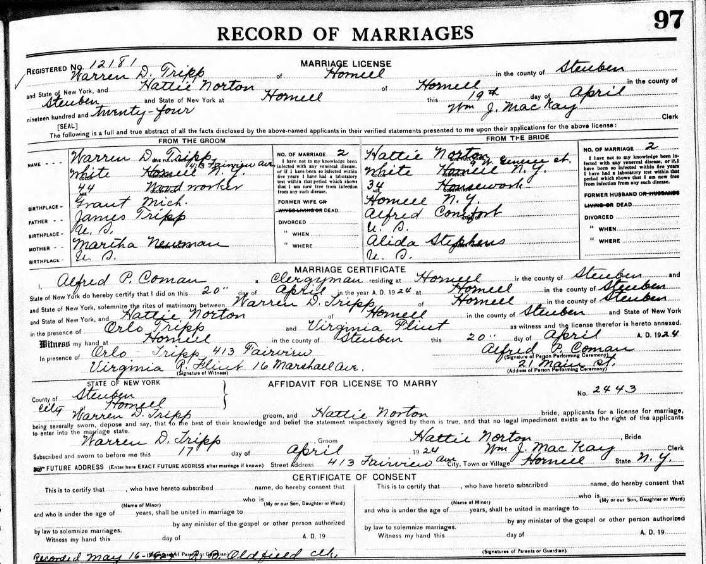 97
RECORD OF MARRIAGES
REGISTERED No. 12181 MARRIAGE LICENSE
Warren D. Tripp of Hornell in the county of Steuben
and State of New York, and Hattie Norton of Hornell in the county of
Steuben and State of New York at Hornell this 19th day of April
nineteen hundred and twenty-four Wm J. MacKay Clerk
[SEAL]
The following is a full and true abstract of all the facts disclosed by the above-named applicants in their verified statements presented to me upon their applications for the above license:
FROM THE GROOM FROM THE BRIDE
NAME Warren D. Tripp NO. OF MARRIAGE 2 Hattie Norton NO. OF MARRIAGE 2
413 Fairview Ave
White Hornell N.Y. White Hornell N.Y.
I have not to my knowledge been infected with any venereal disease, or if I have been so infected within five years I have had a laboratory test within that period which shows that I am now free from infection from any such disease.
44 Wood worker 34 Housework
BIRTHPLACE Grant Mich. FORMER WIFE OR WIVES LIVING OR DEAD. Hornell N.Y. FORMER HUSBAND OR HUSBANDS LIVING OR DEAD.
FATHER James Tripp DIVORCED Alfred Comfort DIVORCED
BIRTHPLACE U. S. " WHEN U. S. " WHEN
MOTHER Martha Newman " WHERE Alida Stephens " WHERE
BIRTHPLACE U. S. U. S.
MARRIAGE CERTIFICATE
I, Alfred P. Coman a Clergyman residing at Hornell in the county of Steuben and
State of New York do hereby certify that I did on this 20" day of April in the year A. D. 1924 at Hornell in the county of Steuben
and State of New York, solemnize the rites of matrimony between Warren D. Tripp of Hornell in the county of Steuben
and State of New York, and Hattie Norton of Hornell in the county of Steuben and State of New York
in the presence of Orlo Tripp and Virginia Flint as witness and the license therefor is hereto annexed.
Witness my hand at Hornell in the county of Steuben this 20" day of April A. D. 1924
In presence of Orlo Tripp 413 Fairview Alfred P. Coman
(Signature of Person Performing Ceremony)
Virginia R. Flint 16 Marshall Av. 21 Main St.
(Signature of Witness) (Address of Person Performing Ceremony)
STATE OF NEW YORK AFFIDAVIT FOR LICENSE TO MARRY No. 2443
County of Steuben
City Hornell
Warren D. Tripp groom, and Hattie Norton bride, applicants for a license for marriage,
being severally sworn, depose and say, that to the best of their knowledge and belief the statement respectively signed by them is true, and that no legal impediment exists as to the right of the applicants
to enter into the marriage state.
Warren D. Tripp Groom Hattie Norton, Bride
Subscribed and sworn to before me this 17 day of April 1924 Wm J. MacKay Clerk
FUTURE ADDRESS (Enter here EXACT FUTURE ADDRESS after marriage if known) Street Address 413 Fairview Ave City, Town or Village Hornell State N.Y.
CERTIFICATE OF CONSENT
This is to certify that , who have hereto subscribed name, do hereby consent that This is to certify that , who have hereto subscribed name, do hereby consent that
who is who is
(Name of Minor) (My or our Son, Daughter or Ward) (Name of Minor) (My or our Son, Daughter or Ward)
and who is under the age of years, shall be united in marriage to and who is under the age of years, shall be united in marriage to
by any minister of the gospel or other person authorized by any minister of the gospel or other person authorized
by law to solemnize marriages. by law to solemnize marriages.
Witness my hand this day of A. D. 19 Witness my hand this day of A. D. 19
Recorded May 16- B. Oldfield clk. (Signatures of Parents or Guardian)